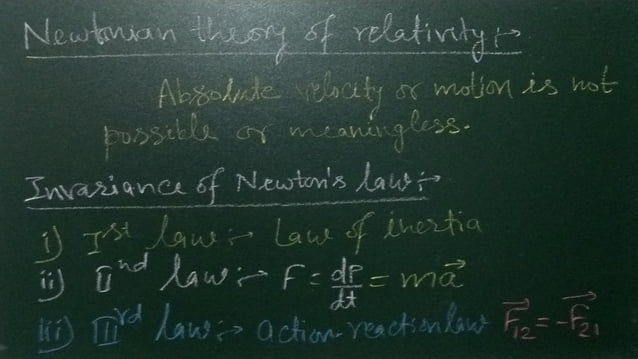 Newtonian theory of relativity:→
Absolute velocity or motion is not
possible or meaningless.
Invariance of Newton's law:→
i) Iˢᵗ law:→ Law of inertia
ii) IIⁿᵈ law:→ F = dP/dt = ma⃗
iii) IIIʳᵈ law:→ action-reaction law F⃗₁₂ = -F⃗₂₁